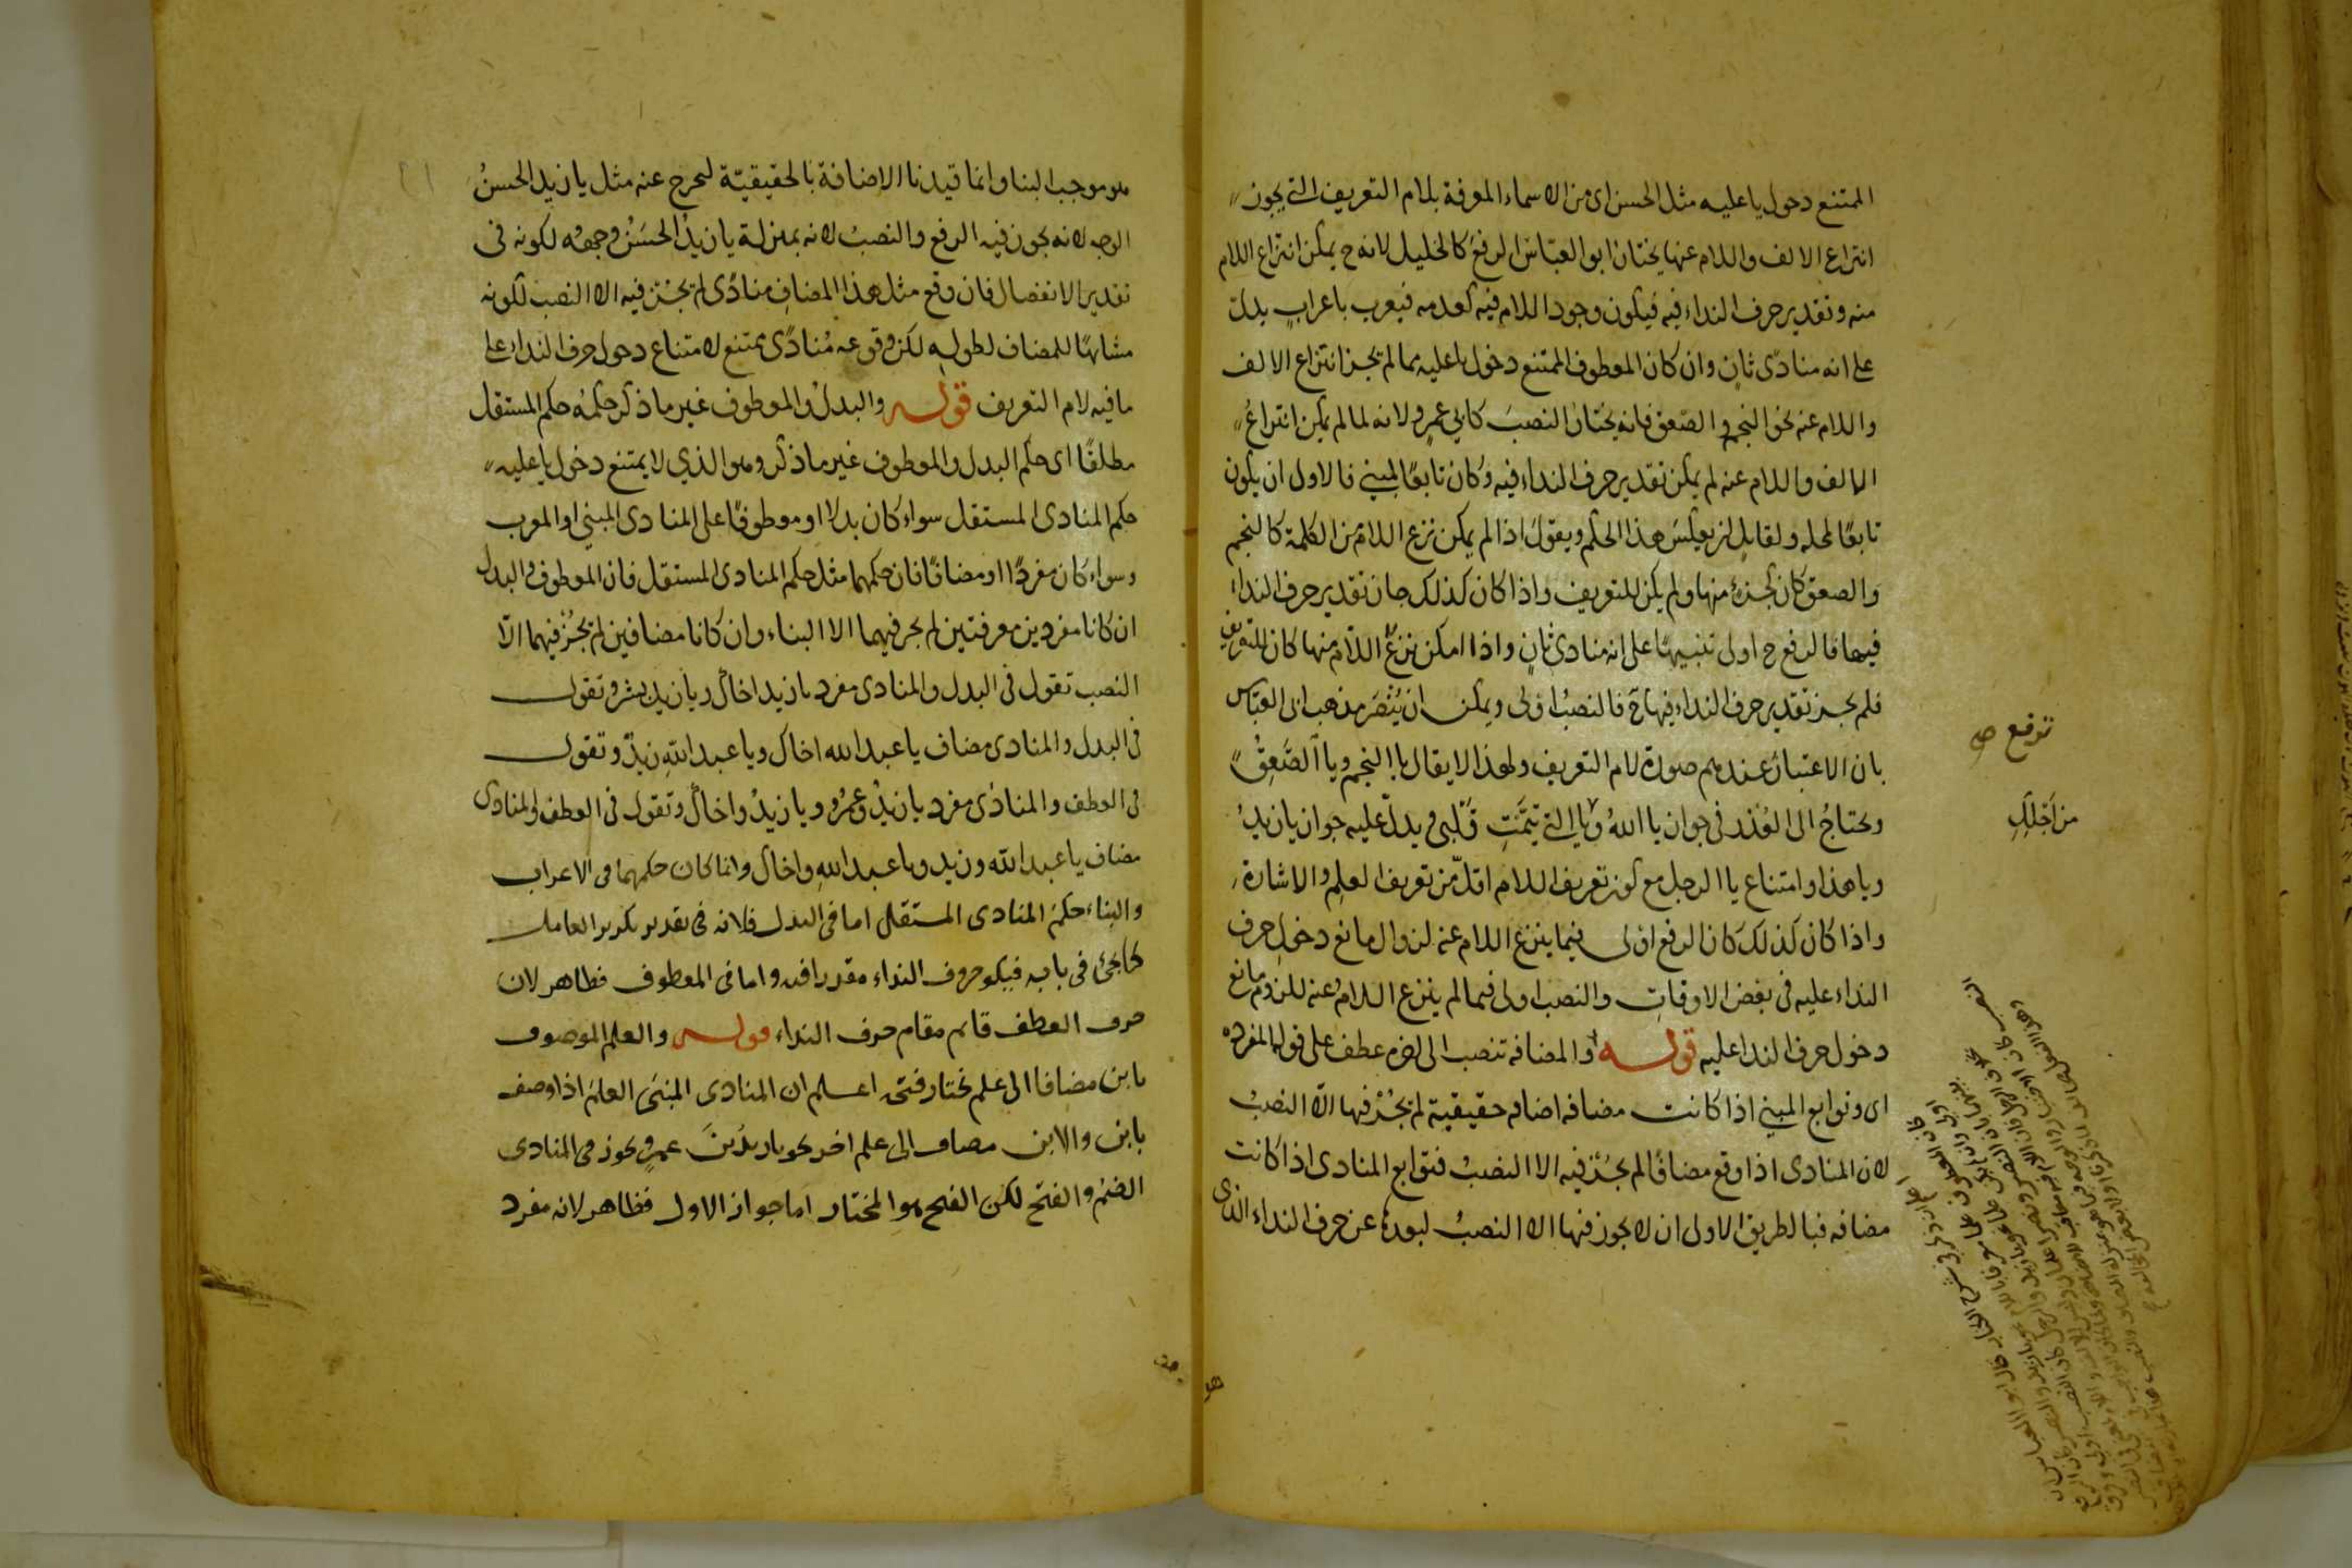 الممتنع دخول يا عليه مثل الحسن اى من الاسماء المعرفة بلام التعريف التى يجوز
انتزاع الالف واللام عنها يختار ابو العباس الرفع كالخليل لانه ح يمكن انتزاع اللام
منه وتقدير حرف النداء فيه فيكون وجود اللام فيه كعدمه فيعرب باعراب يدل
على انه منادى ثان وان كان المعطوف الممتنع دخول يا عليه مما لم يجز انتزاع الالف
واللام عنه نحو النجم والصعق فانه يختار النصب كابى عمرو لانه لما لم يمكن انتزاع
الالف واللام عنه لم يمكن تقدير حرف النداء فيه وكان تابعًا لمبني فالاولى ان يكون
تابعًا لمحله ولقايل ان يعكس هذا الحكم ويقول اذا لم يمكن نزع اللام من الكلمة كالنجم
والصعق كان كجزء منها ولم يكن للتعريف واذا كان كذلك جاز تقدير حرف النداء
فيها فالرفع ح اولى تنبيهًا على انه منادى ثان واذا امكن نزع اللام منها كان للتعريف
فلم يجز تقدير حرف النداء فيها ح فالنصب اولى ويمكن ان ينصر مذهب ابى العباس
بان الاعتبار عندهم صورة لام التعريف ولهذا لا يقال يا النجم ويا الصعق
ويحتاج الى العذر فى جواز يا الله ويا التى تيمت قلبى ويدل عليه جواز يا زيد
ويا هذا وامتناع يا الرجل مع كون تعريف اللام اقل من تعريف العلم والاشارة
واذا كان كذلك كان الرفع اولى فيما ينزع اللام عنه لزوال مانع دخول حرف
النداء عليه فى بعض الاوقات والنصب اولى فيما لم ينزع اللام عنه للزوم مانع
دخول حرف النداء عليه قوله والمضافة تنصب الى اخره عطف على قوله المفردة
اى وتوابع المبني اذا كانت مضافة اضافة حقيقية لم يجز فيها الا النصب
لان المنادى اذا وقع مضافًا لم يجز فيه الا النصب فتوابع المنادى اذا كانت
مضافة فبالطريق الاولى ان لا يجوز فيها الا النصب لبعدها عن حرف النداء الذى
ترفع صح
من اجلك
هو
هو موجب البناء وانما قيدنا الاضافة بالحقيقية ليخرج عنه مثل يا زيد الحسن
الوجه لانه يجوز فيه الرفع والنصب لانه بمنزلة يا زيد الحسن وجهه لكونه فى
تقدير الانفصال فان وقع مثل هذا المضاف منادى لم يجز فيه الا النصب لكونه
مشابهًا للمضاف لطوله لكن وقوعه منادى ممتنع لامتناع دخول حرف النداء على
ما فيه لام التعريف قوله والبدل والمعطوف غير ما ذكر حكمه حكم المستقل
مطلقًا اى حكم البدل والمعطوف غير ما ذكر وهو الذي لا يمتنع دخول يا عليه
حكم المنادى المستقل سواء كان بدلا او معطوفًا على المنادى المبني او المعرب
وسواء كان مفردًا او مضافًا فان حكمهما مثل حكم المنادى المستقل فان المعطوف والبدل
ان كانا مفردين معرفتين لم يجز فيهما الا البناء وان كانا مضافين لم يجز فيهما الا
النصب تقول فى البدل والمنادى مفرد يا زيد اخاك ويا زيد بشر وتقول
فى البدل والمنادى مضاف يا عبد الله اخاك ويا عبد الله زيد وتقول
فى العطف والمنادى مفرد يا زيد وعمرو ويا زيد واخاك وتقول فى العطف والمنادى
مضاف يا عبد الله وزيد ويا عبد الله واخاك وانما كان حكمهما فى الاعراب
والبناء حكم المنادى المستقل اما فى البدل فلانه فى تقدير تكرير العامل
كما يجئ فى بابه فيكو حروف النداء مقدرا فيه واما فى المعطوف فظاهر لان
حرف العطف قايم مقام حرف النداء قوله والعلم الموصوف
بابن مضافا الى علم يختار فتحه اعلم ان المنادى المبنى العلم اذا وصف
بابن والابن مضاف الى علم اخر نحو يا زيد بن عمرو يجوز فى المنادى
الضم والفتح لكن الفتح هو المختار اما جواز الاول فظاهر لانه مفرد